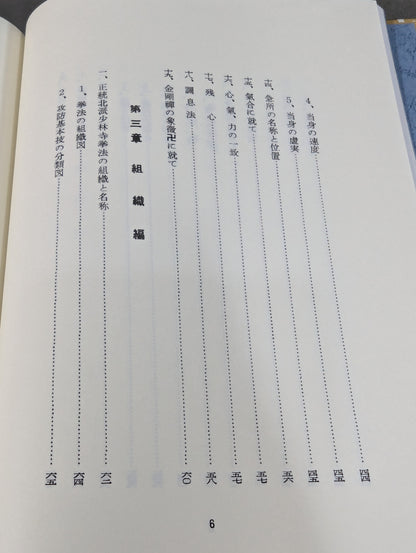 4、当身の速度……四四
5、当身の虚実……四五
十四、急所の名称と位置……四五
十五、氣合に就て……五六
十六、心、氣、力の一致……五七
十七、残心……五七
十八、調息法……五八
十九、金剛禅の象徴卍に就て……六〇
第三章 組織編
一、正統北派少林寺拳法の組織と名称……六二
1、拳法の組織図……六四
2、攻防基本技の分類図……六五
6